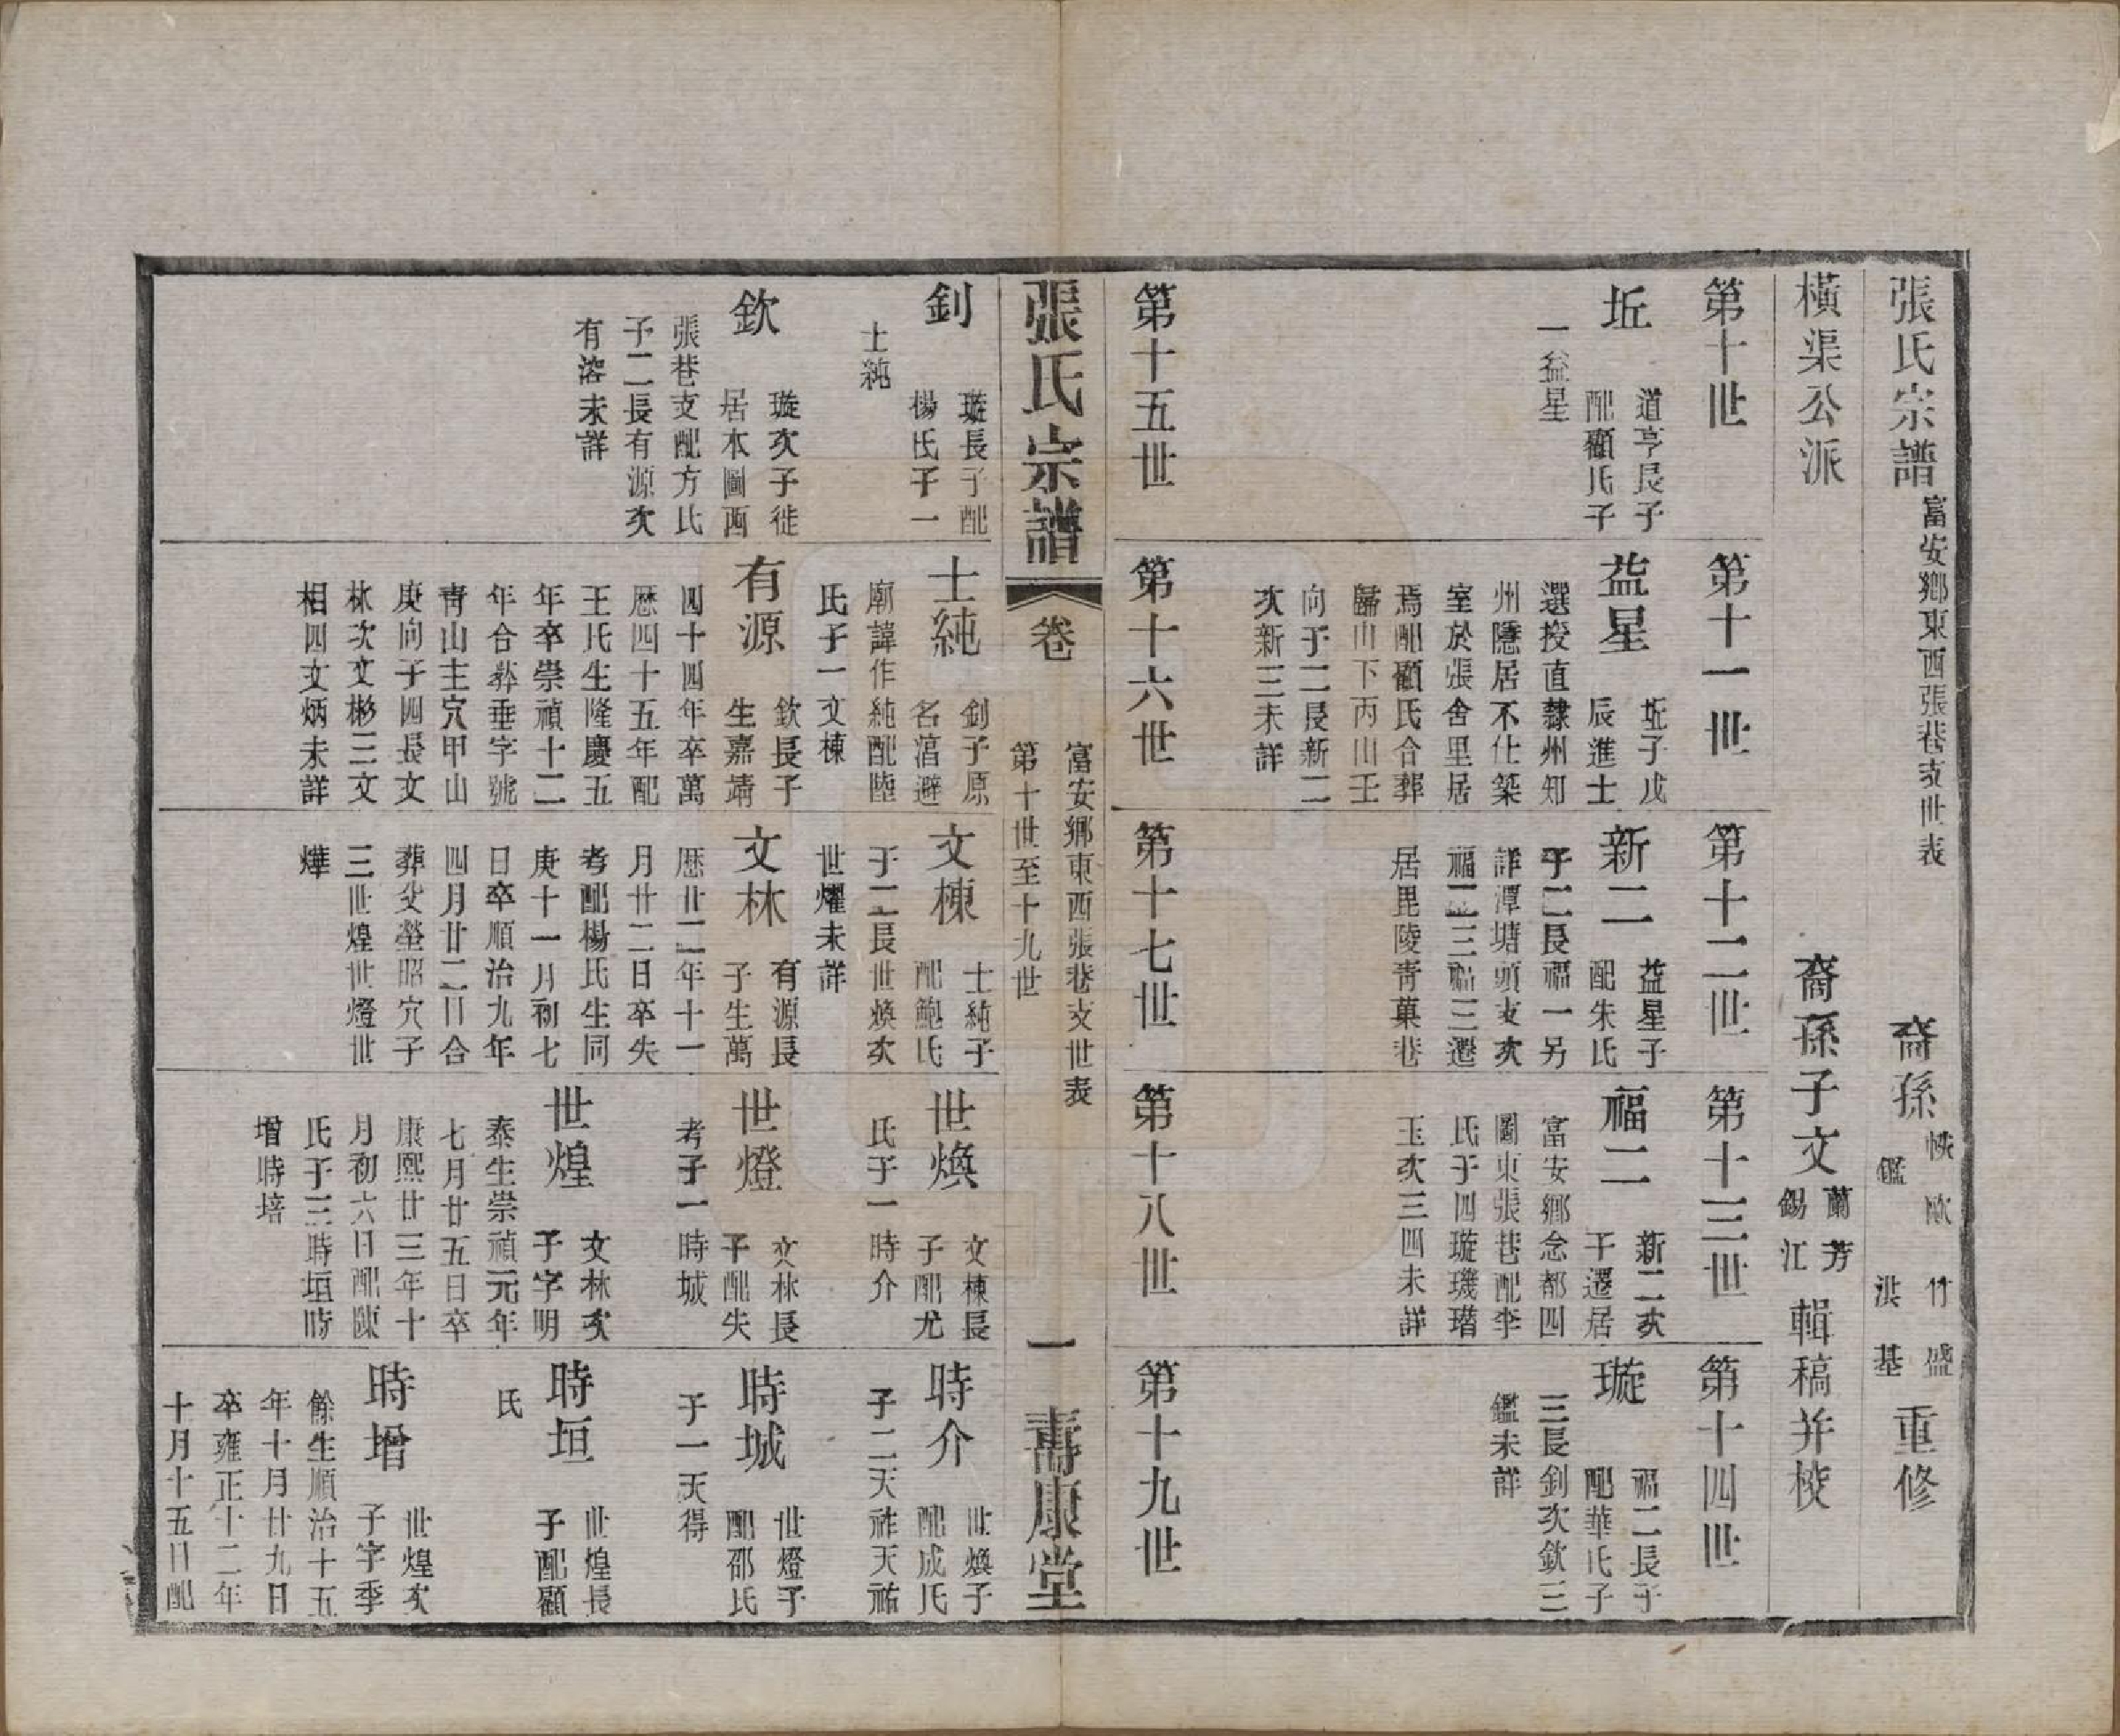 張氏宗譜 富安鄉東西張巷支世表
裔孫 鑑 洪基 竹盛 重修
橫渠公派
裔孫子文 蘭芳 錫江 輯稿并校
第十世
第十一世
第十二世
第十三世
第十四世
坵
道亨長子
配顧氏子
一益星
益星
坵子戊
辰進士
選授直隸州知
州隱居不仕築
室於張舍里居
焉配顧氏合葬
歸山下丙山壬
向子二長新二
次新三未詳
新二
益星子
配朱氏
子二長福一另
詳潭塘頭支次
福二三福三遷
居毘陵青菓巷
福二
新二次
子遷居
富安鄉念都四
圖東張巷配李
氏子四璇璣瑨
玉次三四未詳
璇
福二長子
配華氏子
三長釗次欽三
鑑未詳
第十五世
第十六世
第十七世
第十八世
第十九世
張氏宗譜
卷
富安鄉東西張巷支世表
第十世至十九世
一
壽康堂
釗
璇長子配
楊氏子一
士純
士純
釗子原
名湻避
廟諱作純配陸
氏子一文棟
文棟
士純子
配鮑氏
子二長世煥次
世燿未詳
世煥
文棟長
子配尤
氏子一時介
時介
世煥子
配成氏
子二天祚天祐
欽
璇次子徙
居本圖西
張巷支配方氏
子二長有源次
有溶未詳
有源
欽長子
生嘉靖
四十四年卒萬
厯四十五年配
王氏生隆慶五
年卒崇禎十二
年合葬垂字號
青山主穴甲山
庚向子四長文
林次文彬三文
相四文炳未詳
文林
有源長
子生萬
厯廿二年十一
月廿二日卒失
考配楊氏生同
庚十一月初七
日卒順治九年
四月廿二日合
葬父塋昭穴子
三世煌世燈世
燁
世燈
文林長
子配失
考子一時城
時城
世燈子
配邵氏
子一天得
世煌
文林次
子字明
泰生崇禎元年
七月廿五日卒
康熙廿三年十
月初六日配陳
氏子三時垣時
增時培
時垣
世煌長
子配顧
氏
時增
世煌次
子字季
餘生順治十五
年十月廿九日
卒雍正十二年
十月十五日配